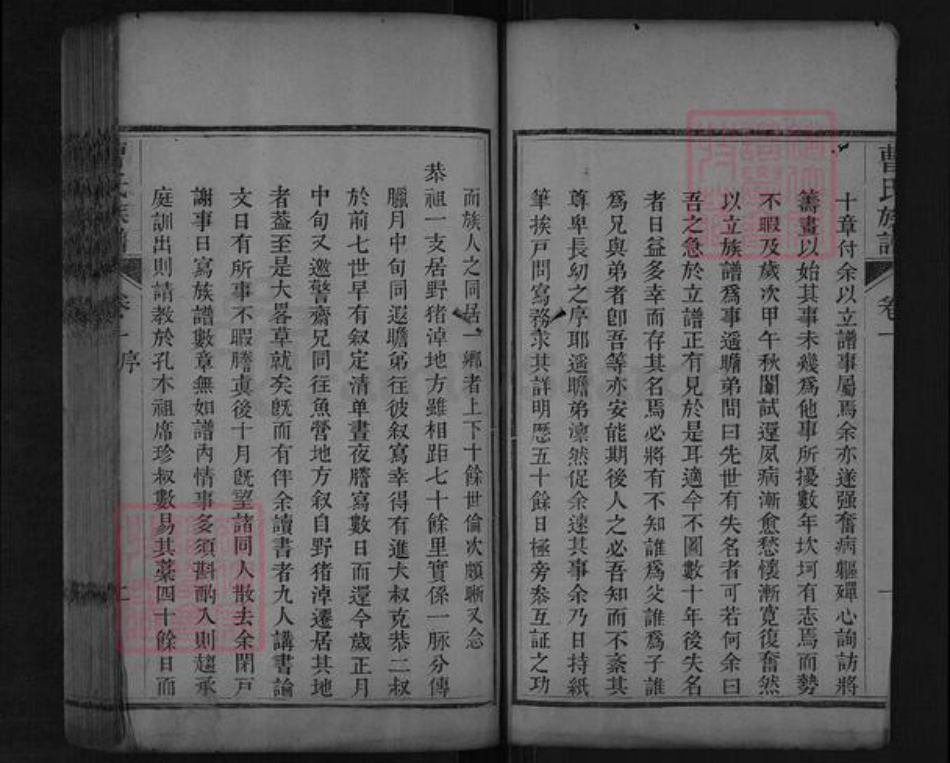 曹氏族譜 卷一
十章付余以立譜事屬焉余亦遂强奮病軀殫心詢訪將
籌畫以始其事未幾爲他事所擾數年坎坷有志焉而勢
不暇及歲次甲午秋闈試還夙病漸愈愁懷漸寬復奮然
以立族譜爲事遥瞻弟問曰先世有失名者可若何余曰
吾之急於立譜正有見於是耳適今不圖數十年後失名
者日益多幸而存其名焉必將有不知誰爲父誰爲子誰
爲兄與弟者卽吾等亦安能期後人之必吾知而不紊其
尊卑長幼之序耶遥瞻弟凜然促余速其事余乃日持紙
筆挨戸問寫務求其詳明歷五十餘日極旁叅互証之功
而族人之同居一鄉者上下十餘世倫次頗晣又念
恭祖一支居野猪淖地方雖相距七十餘里實係一脉分傳
臘月中旬同遐瞻弟往彼叙寫幸得有進大叔克恭二叔
於前七世早有叙定清单晝夜謄寫數日而還今歲正月
中旬又邀警齋兄同往魚營地方叙自野猪淖遷居其地
者葢至是大畧草就矣旣而有伴余讀書者九人講書論
文日有所事不暇謄眞後十月旣望諸同人散去余閉戸
謝事日寫族譜數章無如譜內情事多須斟酌入則趨承
庭訓出則請教於孔木祖席珍叔數易其藁四十餘日而
卷一 序
二